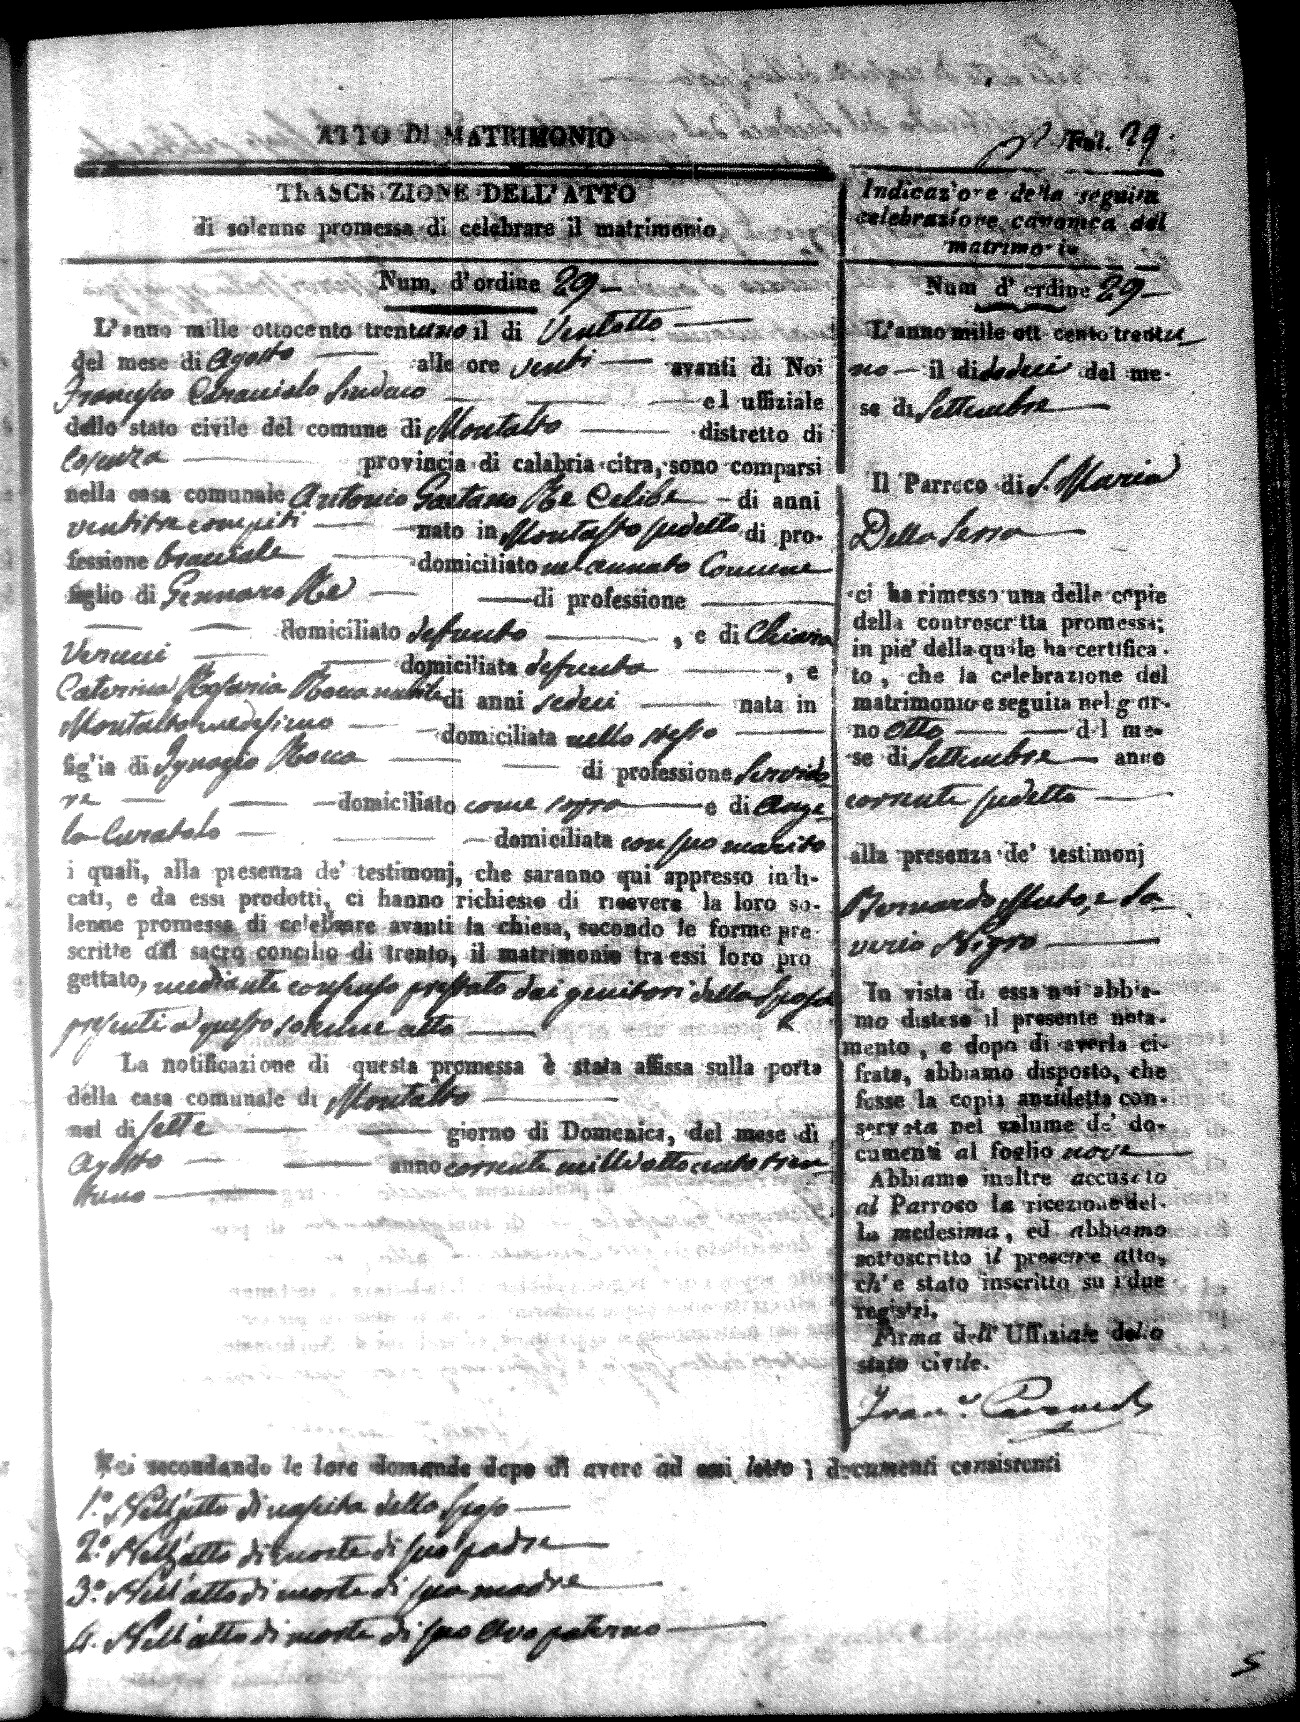 ATTO DI MATRIMONIO
Fol. 29.
TRASCRIZIONE DELL'ATTO
di solenne promessa di celebrare il matrimonio
Num. d'ordine 29
L'anno mille ottocento trentuno il di Ventotto
del mese di Agosto alle ore venti avanti di Noi
Francesco Sindaco ed uffiziale
dello stato civile del comune di Montalto distretto di
Cosenza provincia di calabria citra, sono comparsi
nella casa comunale Antonio Gaetano Re Celibe di anni
ventitre compiti nato in Montalto sudetto di pro-
fessione bracciale domiciliato nel cennato Comune
figlio di Gennaro Re di professione
domiciliato defunto, e di Chiara
domiciliata defunta, e
Caterina Rosaria Rocca nubile di anni sedeci nata in
Montalto medesimo domiciliata nello stesso
figlia di Ignazio Rocca di professione Servido
re domiciliato come sopra e di Ange
la Curatolo domiciliata con suo marito
i quali, alla presenza de' testimonj, che saranno qui appresso indi-
cati, e da essi prodotti, ci hanno richiesto di ricevere la loro so-
lenne promessa di celebrare avanti la chiesa, secondo le forme pre
scritte dal sacro concilio di trento, il matrimonio tra essi loro pro
gettato, mediante consenso prestato dai genitori della Sposa
presenti a questo solenne atto
La notificazione di questa promessa è stata affissa sulla porta
della casa comunale di Montalto
nel di sette giorno di Domenica, del mese di
Agosto anno corrente mille otto cento tren
tuno
Indicazione della seguita
celebrazione canonica del
matrimonio
Num d'ordine 29
L'anno mille ottocento trentu
no il di dodeci del me-
se di Settembre
Il Parroco di S. Maria
Della Serra
ci ha rimesso una delle copie
della controscritta promessa;
in piè della quale ha certifica-
to, che la celebrazione del
matrimonio e seguita nel gior-
no otto del me-
se di Settembre anno
corrente sudetto
alla presenza de' testimonj
Bernardo Muto, e Sa
verio Nigro
In vista di essa noi abbia-
mo disteso il presente nota-
mento, e dopo di averla ci-
frata, abbiamo disposto, che
fosse la copia anzidetta con-
servata nel volume de' do-
cumenti al foglio nove
Abbiamo inoltre accusato
al Parroco la ricezione del-
la medesima, ed abbiamo
sottoscritto il presente atto,
ch'e stato inscritto su i due
registri.
Firma dell'Uffiziale dello
stato civile.
Noi secondando le loro domande dopo di avere ad essi letto i documenti consistenti
1.° Nell'atto di nascita dello Sposo
2.° Nell'atto di morte di suo padre
3.° Nell'atto di morte di sua madre
4. Nell'atto di morte di suo Avo paterno
5